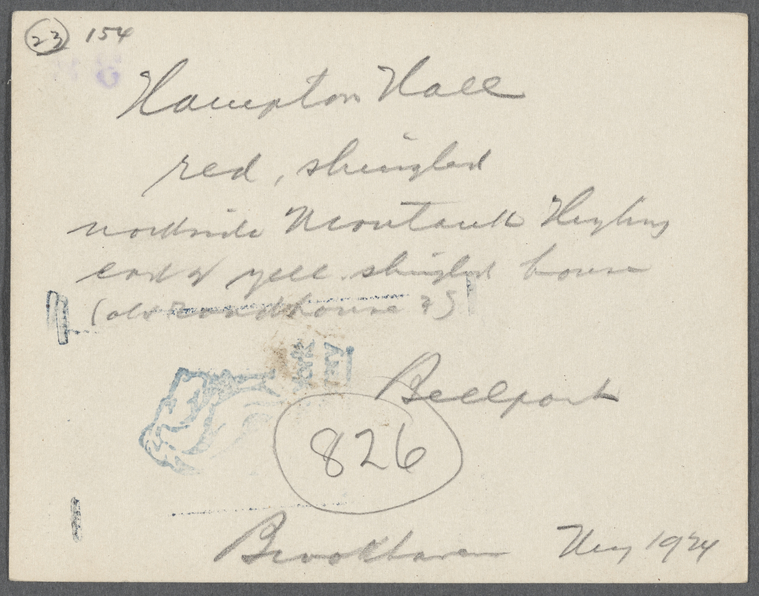 23 154
Hampton Hall
red, shingled
northside Montauk Highway
east of yell. shingled house
(old roadhouse?)
Bellport
826
Brookhaven May 1924